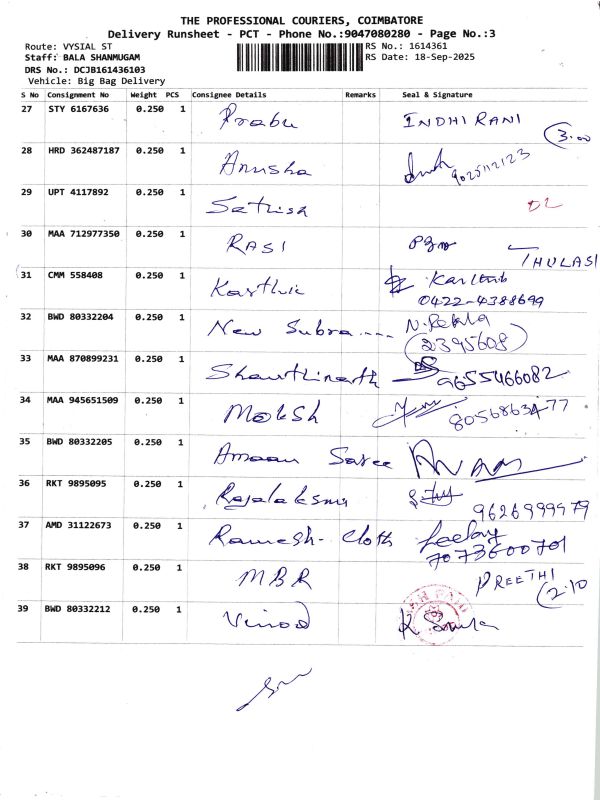 THE PROFESSIONAL COURIERS, COIMBATORE
Delivery Runsheet - PCT - Phone No.:9047080280 - Page No.:3
Route: VYSIAL ST RS No.: 1614361
Staff: BALA SHANMUGAM RS Date: 18-Sep-2025
DRS No.: DCJB161436103
Vehicle: Big Bag Delivery
S No Consignment No Weight PCS Consignee Details Remarks Seal & Signature
27 STY 6167636 0.250 1 Prabu INDHIRANI
3.00
28 HRD 362487187 0.250 1 Anusha 9025112123
29 UPT 4117892 0.250 1 Sathish
30 MAA 712977350 0.250 1 RASI THULASI
31 CMM 558408 0.250 1 Karthic Karthik
0422-4388699
32 BWD 80332204 0.250 1 New Subra.... N.Rekha
2395608
33 MAA 870899231 0.250 1 Shawthinath 9655466082
34 MAA 945651509 0.250 1 Moksh 8056863477
35 BWD 80332205 0.250 1 Amaan Saree
36 RKT 9895095 0.250 1 Rajalaksmi 9626999979
37 AMD 31122673 0.250 1 Ramesh- Cloth
7073600701
38 RKT 9895096 0.250 1 MBR PREETHI
2.10
39 BWD 80332212 0.250 1 Vinod K